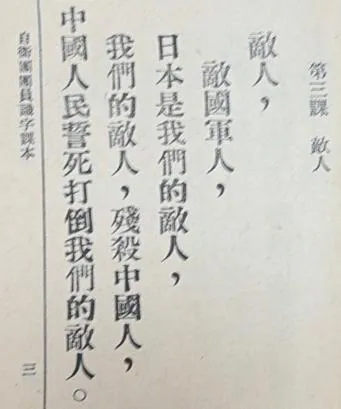 第三課　敵人
敵人，
敵國軍人，
日本是我們的敵人，
我們的敵人，殘殺中國人，
中國人民誓死打倒我們的敵人。
自衛團團員識字課本
三